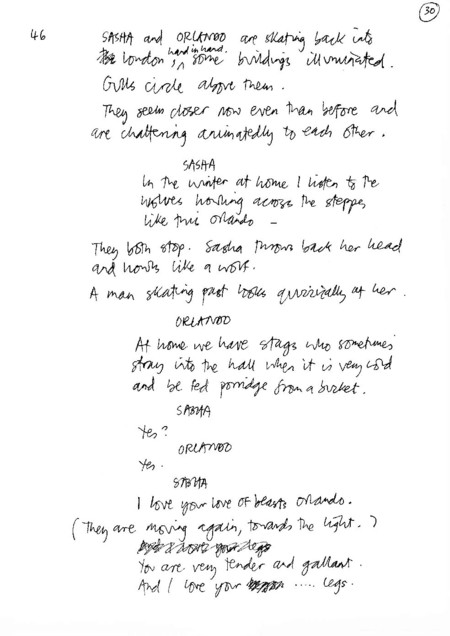 30
46
SASHA and ORLANDO are skating back into
London, hand in hand. some buildings illuminated.
Gulls circle above them.
They seem closer now even than before and
are chattering animatedly to each other.
SASHA
In the winter at home I listen to the
wolves howling across the steppes
like this Orlando –
They both stop. Sasha throws back her head
and howls like a wolf.
A man skating past looks quizzically at her.
ORLANDO
At home we have stags who sometimes
stray into the hall when it is very cold
and be fed porridge from a bucket.
SASHA
Yes?
ORLANDO
Yes.
SASHA
I love your love of beasts Orlando.
(They are moving again, towards the light.)
You are very tender and gallant.
And I love your ..... legs.